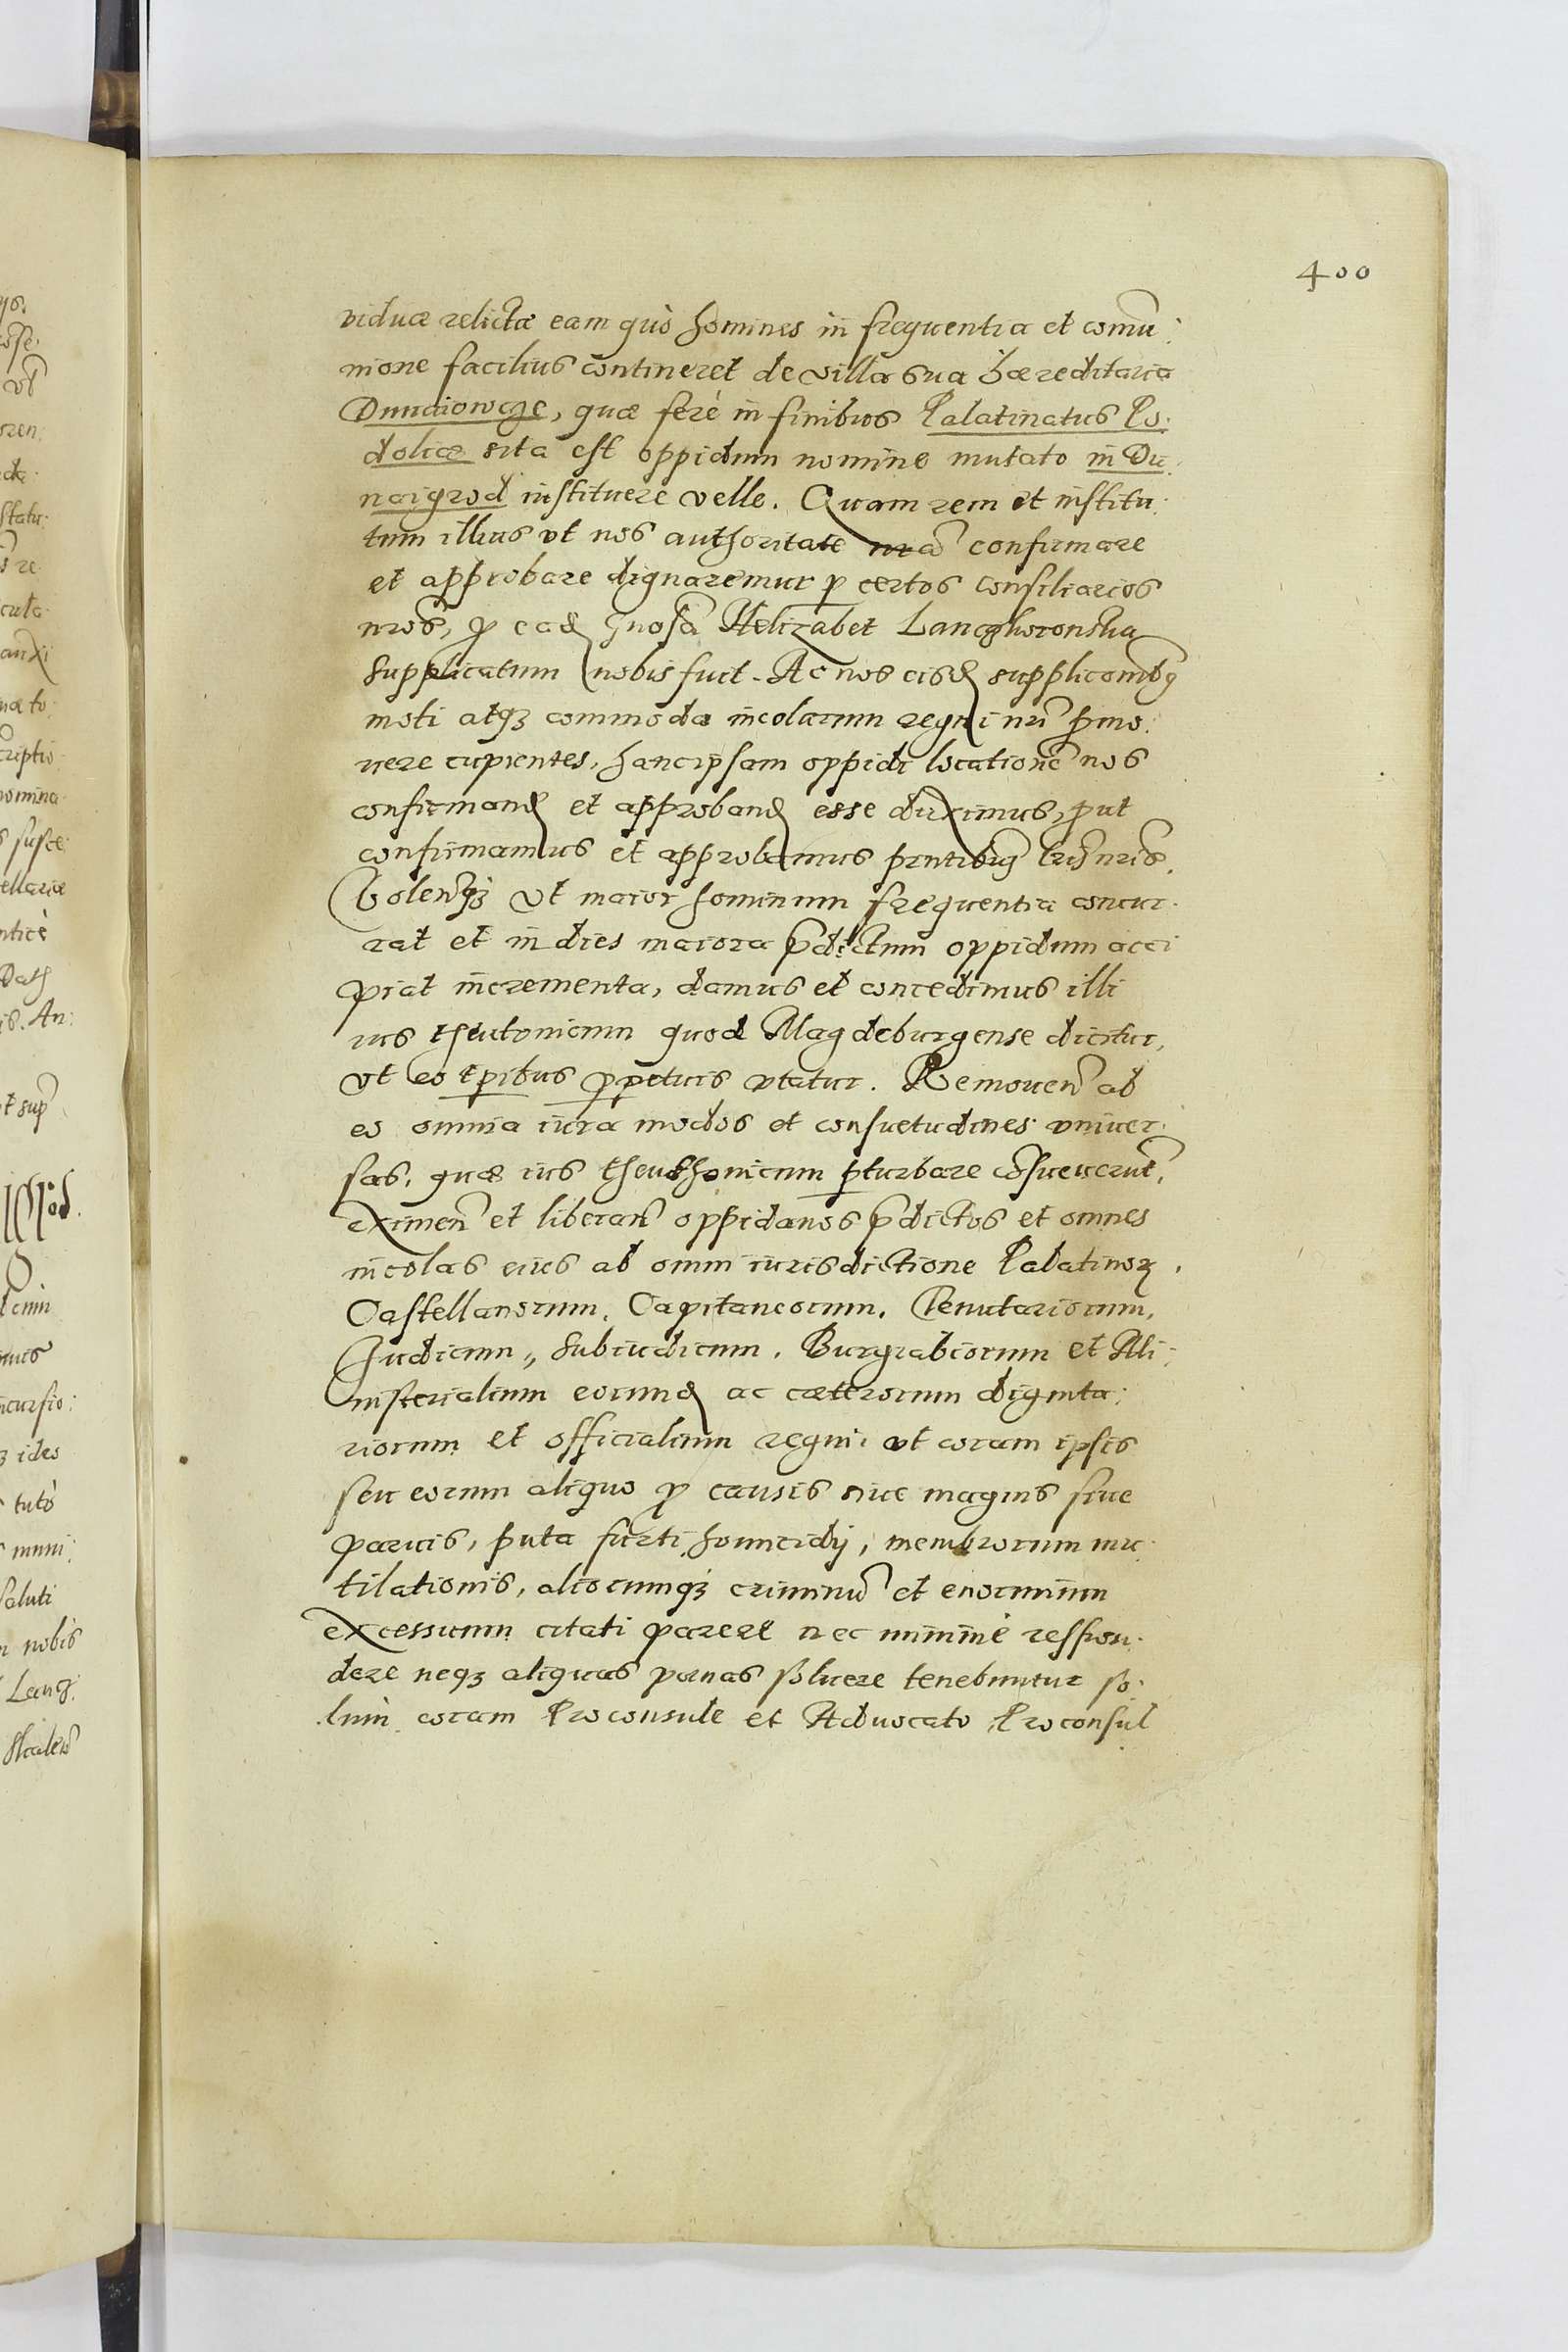 400
viduæ relictæ eam quò homines in frequentia et comu:
nione facilius contineret de villa sua hæreditaria
Dunaiowcze, quæ ferè in finibus Palatinatus Po:
doliæ sita est oppidum nomine mutato in Du:
naigrod instituere velle. Quam rem et institu:
tum illius ut nos authoritate nra confirmare
et approbare dignaremur p certos consiliarios
nros, p ead Gnosa Helizabet Lanczkoronska
supplicatum nobis fuit. Ac nos eisd supplicationibg
moti atqz commoda incolarum regni nri promo:
uere cupientes, hancipsam oppidi locatione nos
confirmand et approband esse duximus, prout
confirmamus et approbamus pntibus lris nris.
Volentqz ut maior hominum frequentia concur:
rat et in dies maiora prdictum oppidum acci
piat incrementa, damus et concedimus illi
ius theutonicum quod Magdeburgense dicitur,
ut eo tpribus perpetuis utatur. Remouen ab
eo omnia iura modos et consuetudines uniuer:
sas, quæ ius theuthonicum pturbare consueuerut,
eximen et liberan oppidanos prdictos et omnes
incolas eius ab omni iurisdictione Palatinorz,
Castellanorum, Capitaneorum, Tenutariorum,
Iudicum, Subiudicum, Burgrabiorum et Mi:
nisterialium eorumd ac cæterorum dignita:
riorum et officialium regni, ut coram ipsis
seu eorum aliquo p causis siue magnis siue
paruis, puta furti, homicidij, membrorum mu:
tilationis, aliorumqz criminu et enormium
excessuum citati parere nec minimè respon:
dere neqz aliquas pœnas soluere tenebuntur so:
lum coram Proconsule et Aduocato, Proconsul